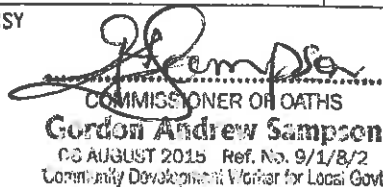 SY
G Sampson
COMMISSIONER OF OATHS
Gordon Andrew Sampson
08 AUGUST 2015 Ref. No. 9/1/8/2
Community Development Worker for Local Govt